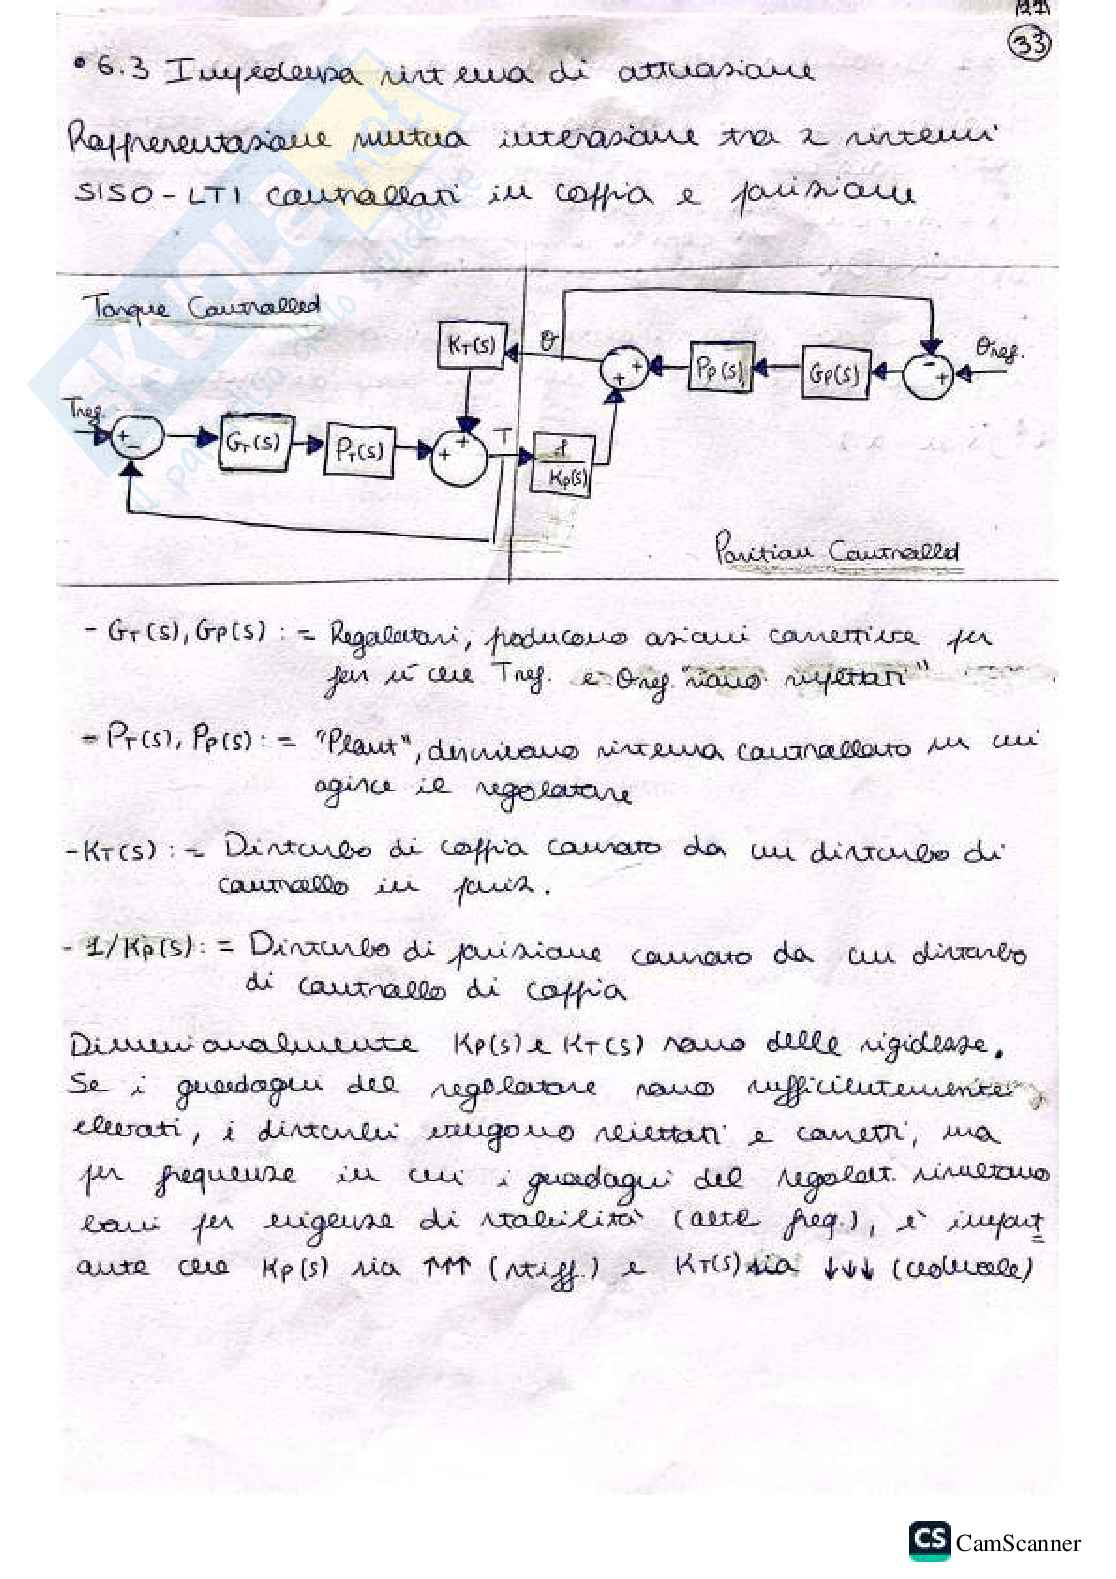 33
• 6.3 Impedenza sistema di attuazione
Rappresentazione mutua interazione tra 2 sistemi
SISO-LTI controllati in coppia e posizione
Torque Controlled
KT(s)
θ
PP(s)
GP(s)
-
+
θref.
+
+
Tref.
+
-
GT(s)
PT(s)
+
+
T
1
KP(s)
Position Controlled
- GT(s), GP(s) : = Regolatori, producono azioni correttive per
far sì che Tref. e θref. "siano rispettati"
- PT(s), PP(s) : = "Plant", descrivono sistema controllato in cui
agisce il regolatore
- KT(s) : = Disturbo di coppia causato da un disturbo di
controllo in posiz.
- 1/KP(s) : = Disturbo di posizione causato da un disturbo
di controllo di coppia
Dimensionalmente KP(s) e KT(s) sono delle rigidezze.
Se i guadagni del regolatore sono sufficientemente
elevati, i disturbi vengono reiettati e corretti, ma
per frequenze in cui i guadagni del regolat. risultano
bassi per esigenze di stabilità (alte freq.), è import
ante che KP(s) sia ↑↑↑ (stiff.) e KT(s) sia ↓↓↓ (cedevole)
SKUOLA.net
il paradiso dello studente
CS CamScanner